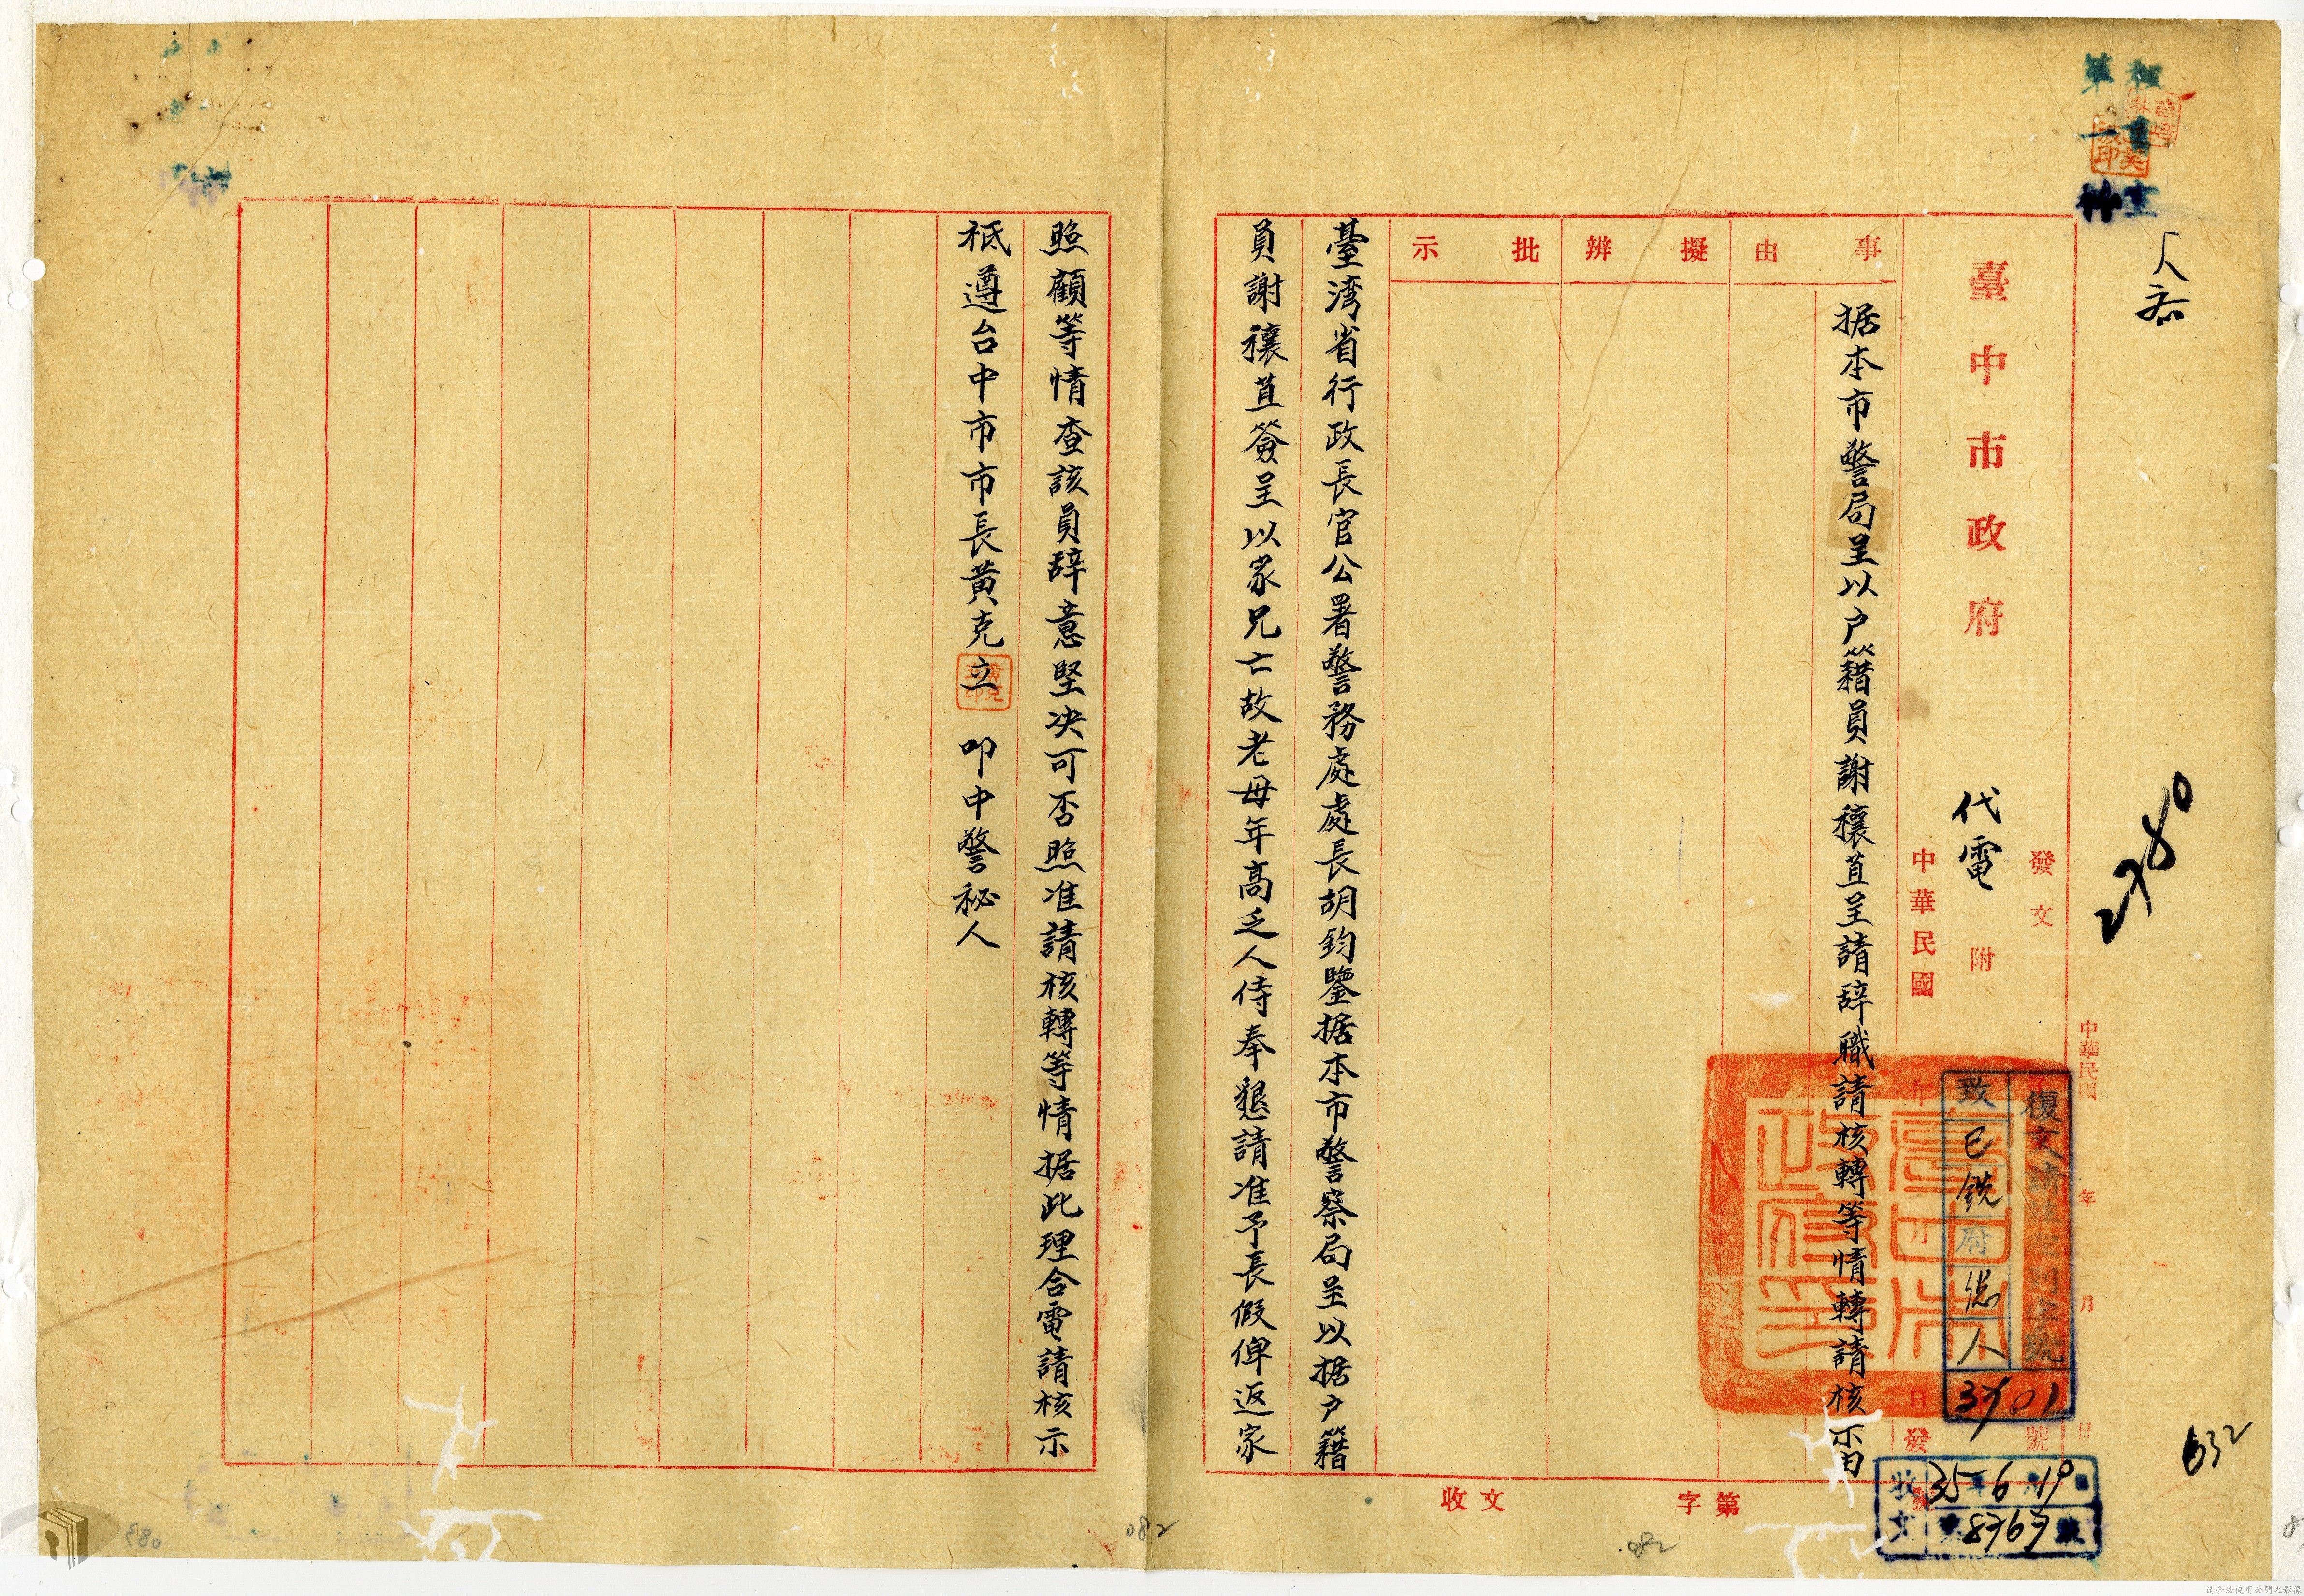 人
2780
032
臺中市政府
代電
附
發文
中華民國
年
月
日
號
復文請註明字號
致
已銑
府
總
人
3701
中華民國
年
日發
收文
35 6 19
8767
事由
擬辦
批示
据本市警局呈以戶籍員謝穰苴呈請辞職請核轉等情轉請核示由
臺湾省行政長官公署警務處處長胡鈞鑒据本市警察局呈以据戶籍
員謝穰苴簽呈以家兄亡故老母年高乏人侍奉懇請准予長假俾返家
照顧等情查該員辞意堅决可否照准請核轉等情据此理合電請核示
祗遵台中市市長黃克立 叩中警秘人
收文
字第
082
082
083
請合法使用公開之影像